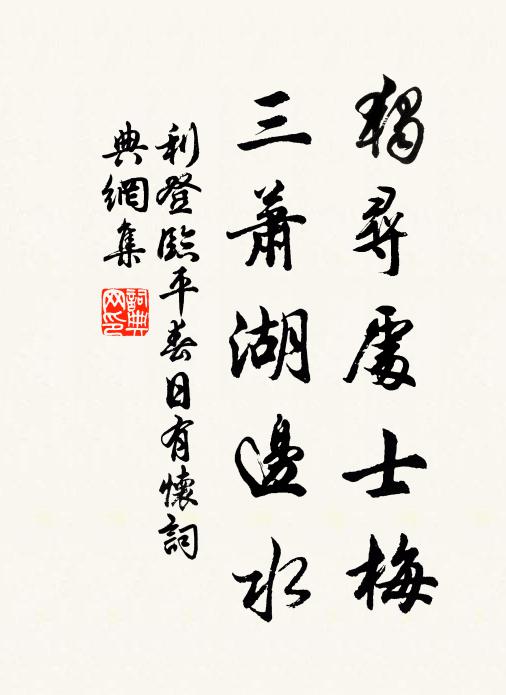 獨尋處士梅
三蕭湖邊水
利登臨平春日有懷詞
典網集
詞典
网印